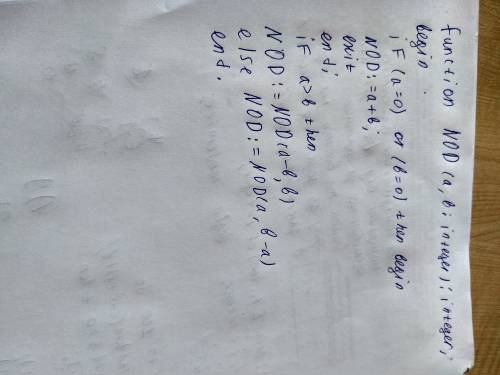 function NOD (a, b: integer): integer;
begin
if (a=0) or (b=0) then begin
NOD:=a+b;
exit
end;
if a>b then
NOD:=NOD(a-b,b)
else NOD:=NOD(a, b-a)
end.